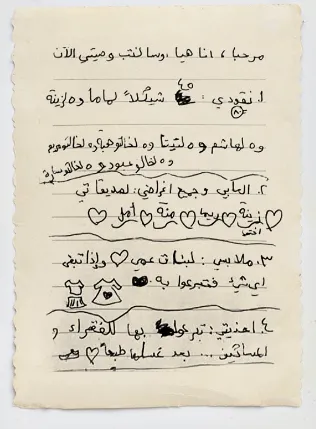 مرحبا ، انا هيا ، وسأكتب وصيتي الآن
١. نقودي : ٤٥ شيكلاً لماما و٥ لزينة
و٥ لهاشم و٥ لتيتا و٥ لخالتو هبة و٥ لخالتو مريم
و٥ لخالو عبود و٥ لخالتو سارة
٢. ألعابي وجميع اغراضي: لصديقاتي
زينة ♡ ريما ♡ منة ♡ أمل ♡
اختي
٣. ملابسي : لبنات عمي ♡ وإذا تبقى
اي شيء فتبرعوا به
٤. احذيتي: تبرعوا بها للفقراء و
المساكين ... بعد غسلها طبعاً ♡